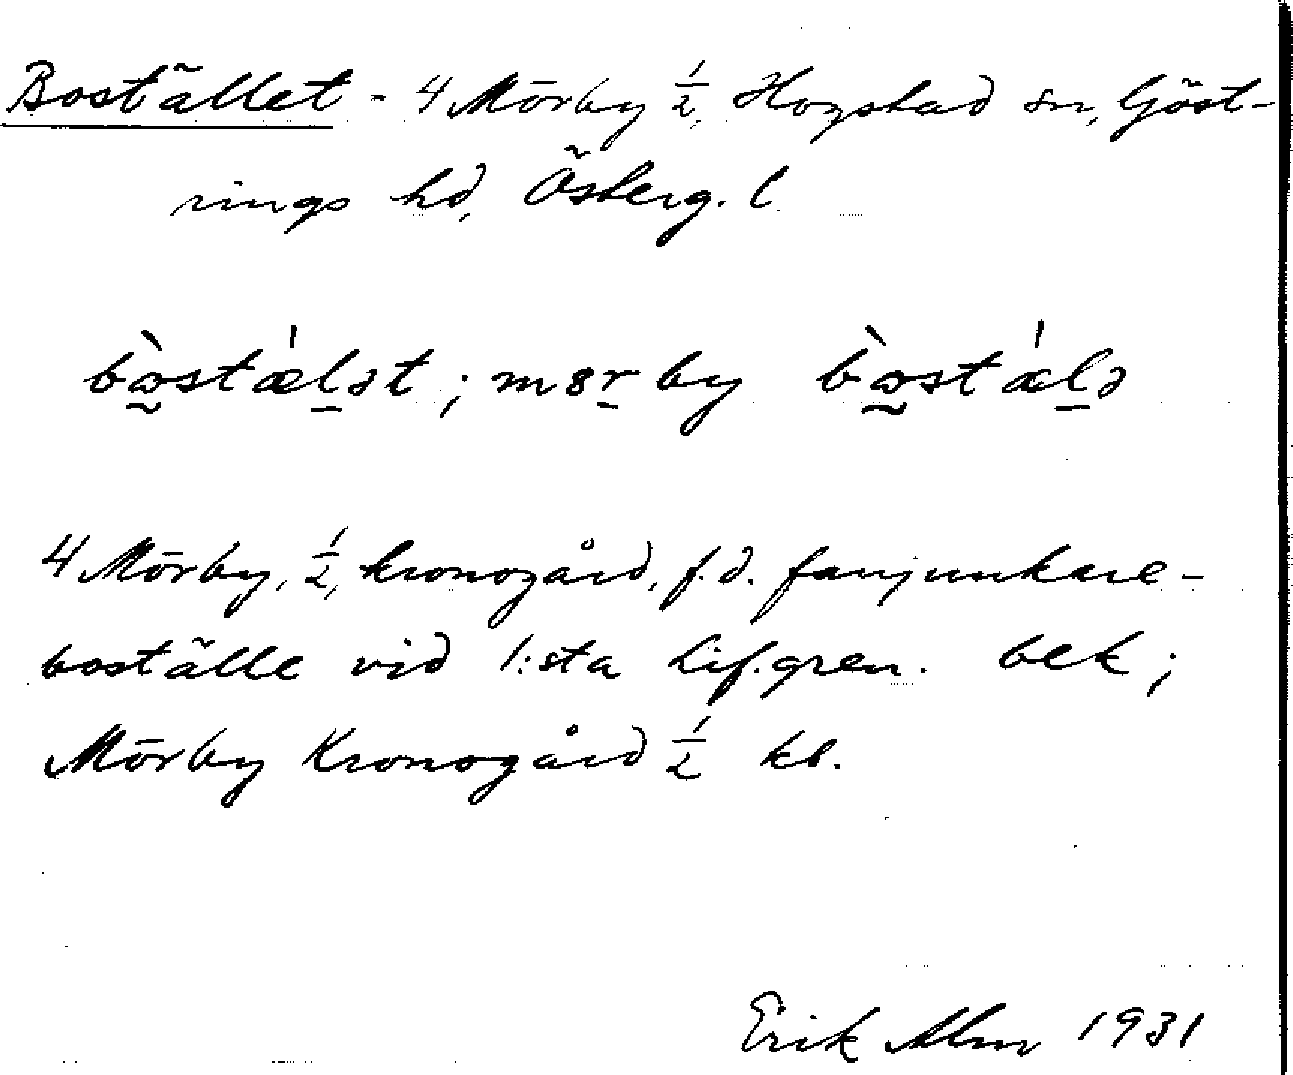 Bostället - 4 Mörby ½, Hogstad sn, Göst-
rings hd, Österg. l
bòstǽlət; mörby bòstǽlə
4 Mörby, ½, kronogård, f.d. fanjunkare-
boställe vid 1:sta Lif.gren. bek;
Mörby Kronogård ½ kb.
Erik Alm 1931